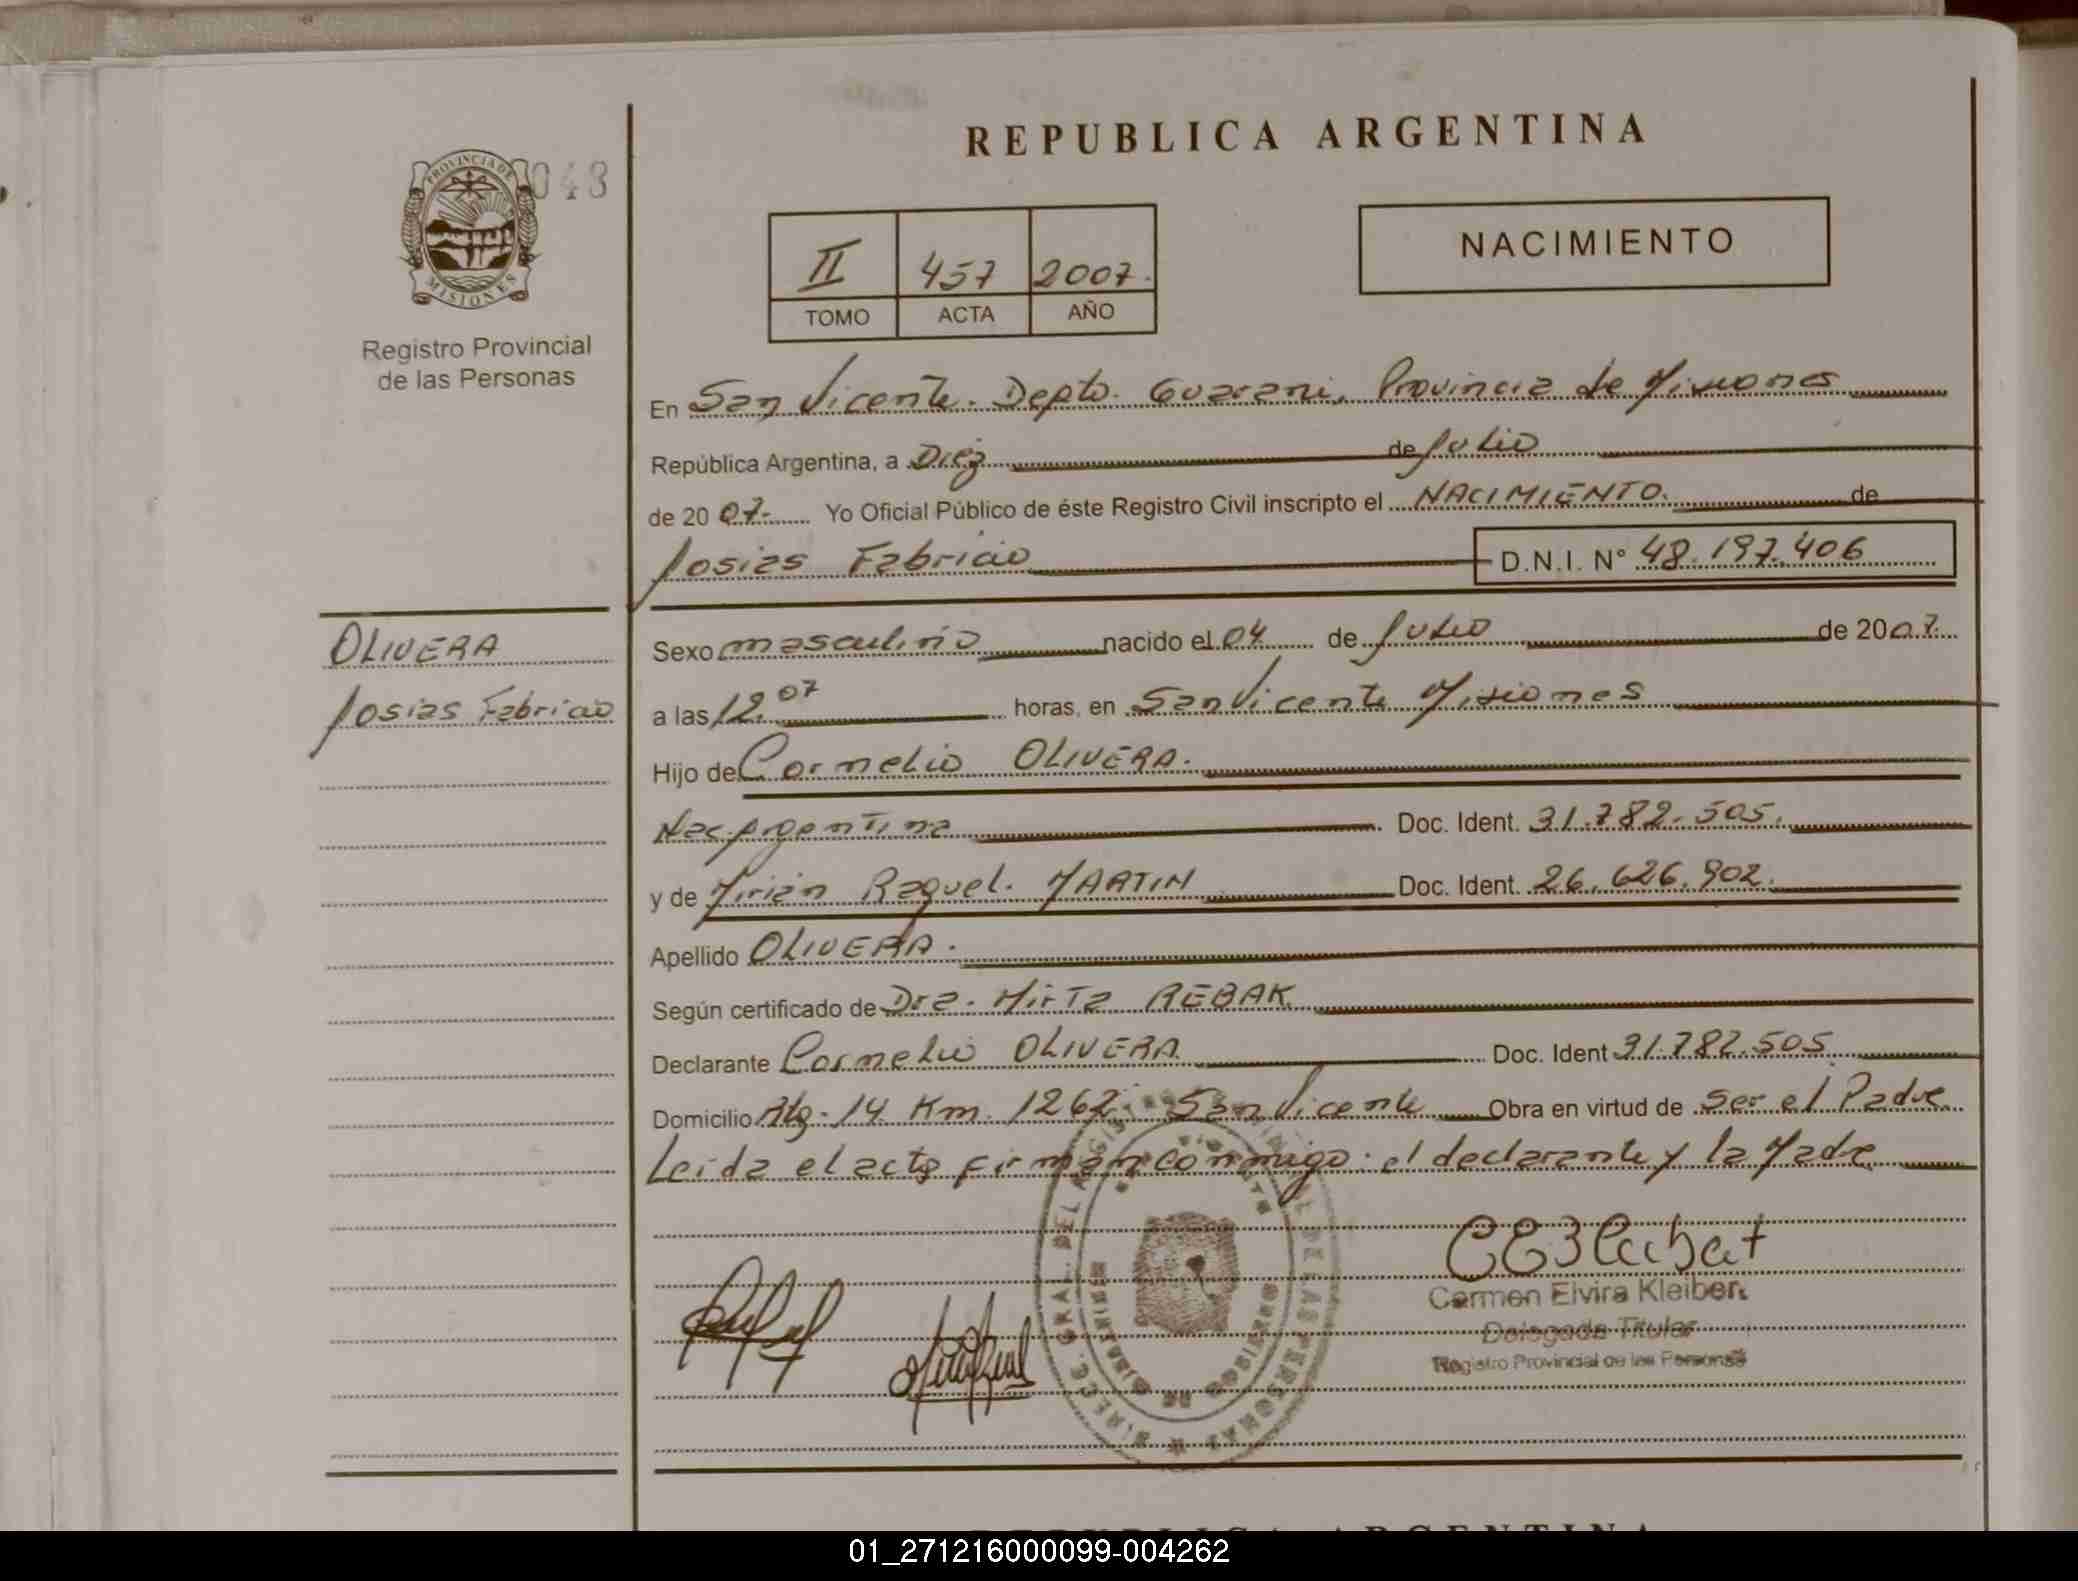 REPUBLICA ARGENTINA
PROVINCIA DE MISIONES
048
Registro Provincial
de las Personas
II 457 2007.
TOMO ACTA AÑO
NACIMIENTO
En San Vicente. Depto. Guarani, Provincia de Misiones
República Argentina, a Diez de Julio
de 20 07- Yo Oficial Público de éste Registro Civil inscripto el NACIMIENTO. de
Josias Fabricio D.N.I. N° 48.197.406
OLIVERA
Josias Fabricio
Sexo masculino nacido el 04 de Julio de 2007.
a las 12.07 horas, en San Vicente Misiones
Hijo de Cornelio OLIVERA.
Nac. Argentina Doc. Ident. 31.782.505.
y de Mirian Raquel. MARTIN Doc. Ident. 26.626.902.
Apellido OLIVERA.
Según certificado de Dra. Mirta REBAK
Declarante Cornelio OLIVERA Doc. Ident 31.782.505
Domicilio Rta. 14 Km. 1262. San Vicente Obra en virtud de ser el Padre
Leida el acta firman conmigo: el declarante y la Madre
Carmen Elvira Kleiber
Delegada Titular
Registro Provincial de las Personas
REPUBLICA ARGENTINA
01_271216000099-004262